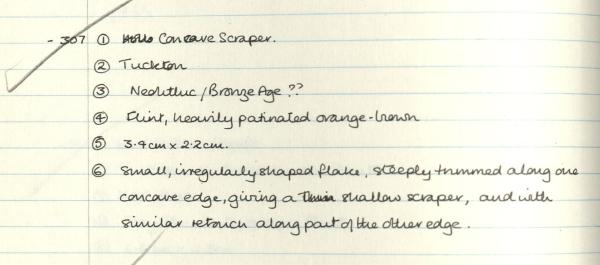 - 307 ① Concave Scraper.
② Tuckton
③ Neolithic / Bronze Age ??
④ Flint, heavily patinated orange-brown
⑤ 3.4cm x 2.2cm.
⑥ Small, irregularly shaped flake, steeply trimmed along one
concave edge, giving a shallow scraper, and with
similar retouch along part of the other edge.